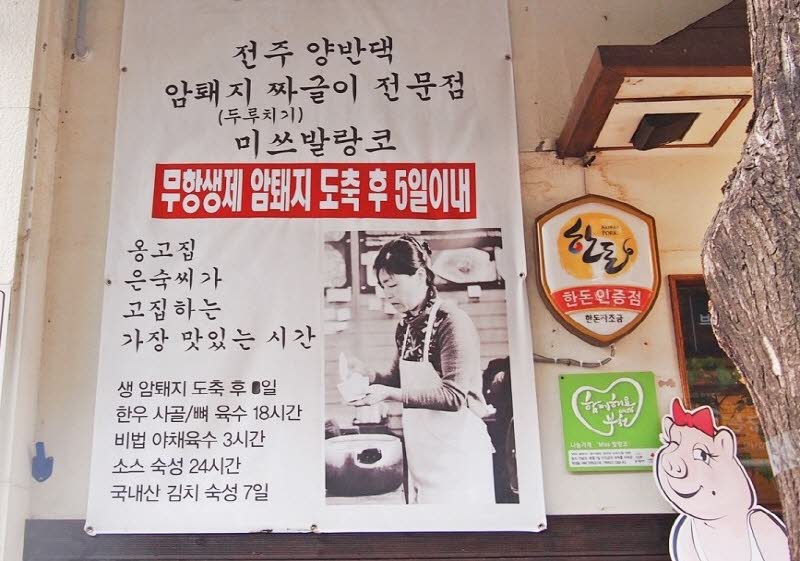 전주 양반댁
암퇘지 짜글이 전문점
(두루치기)
미쓰발랑코
무항생제 암퇘지 도축 후 5일이내
옹고집
은숙씨가
고집하는
가장 맛있는 시간
생 암퇘지 도축 후 일
한우 사골/뼈 육수 18시간
비법 야채육수 3시간
소스 숙성 24시간
국내산 김치 숙성 7일
한돈
한돈인증점
한돈자조금
함께해요
부천
나눔가게